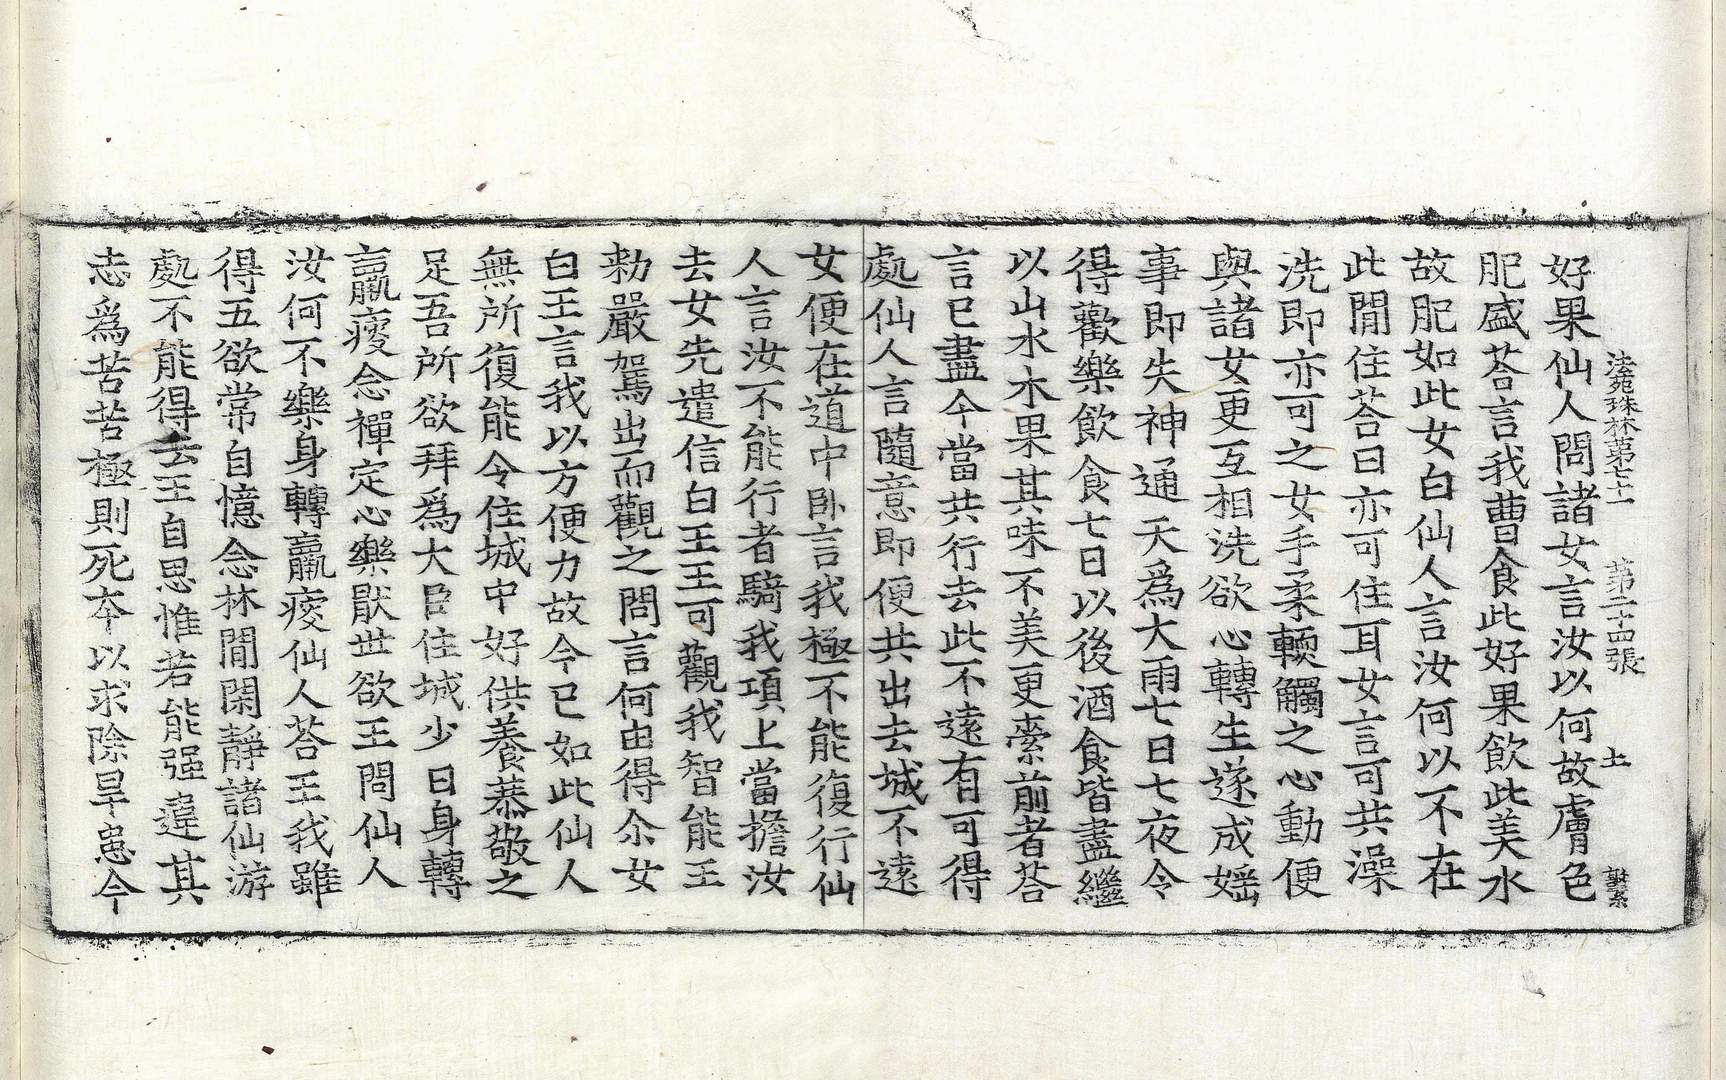 法苑珠林第七十一 第二十四張 士
好果仙人問諸女言汝以何故膚色
肥盛荅言我曹食此好果飲此美水
故肥如此女白仙人言汝何以不在
此閒住荅曰亦可住耳女言可共澡
洗即亦可之女手柔輭觸之心動便
與諸女更互相洗欲心轉生遂成婬
事即失神通天爲大雨七日七夜令
得歡樂飲食七日以後酒食皆盡繼
以山水木果其味不美更索前者荅
言已盡今當共行去此不遠有可得
處仙人言隨意即便共出去城不遠
女便在道中卧言我極不能復行仙
人言汝不能行者騎我項上當擔汝
去女先遣信白王王可觀我智能王
勑嚴駕出而觀之問言何由得尒女
白王言我以方便力故今已如此仙人
無所復能令住城中好供養恭敬之
足吾所欲拜爲大臣住城少日身轉
羸瘦念禪定心樂猒世欲王問仙人
汝何不樂身轉羸瘦仙人荅王我雖
得五欲常自憶念林閒閑靜諸仙游
處不能得去王自思惟若能强違其
志爲苦苦極則死本以求除旱患今